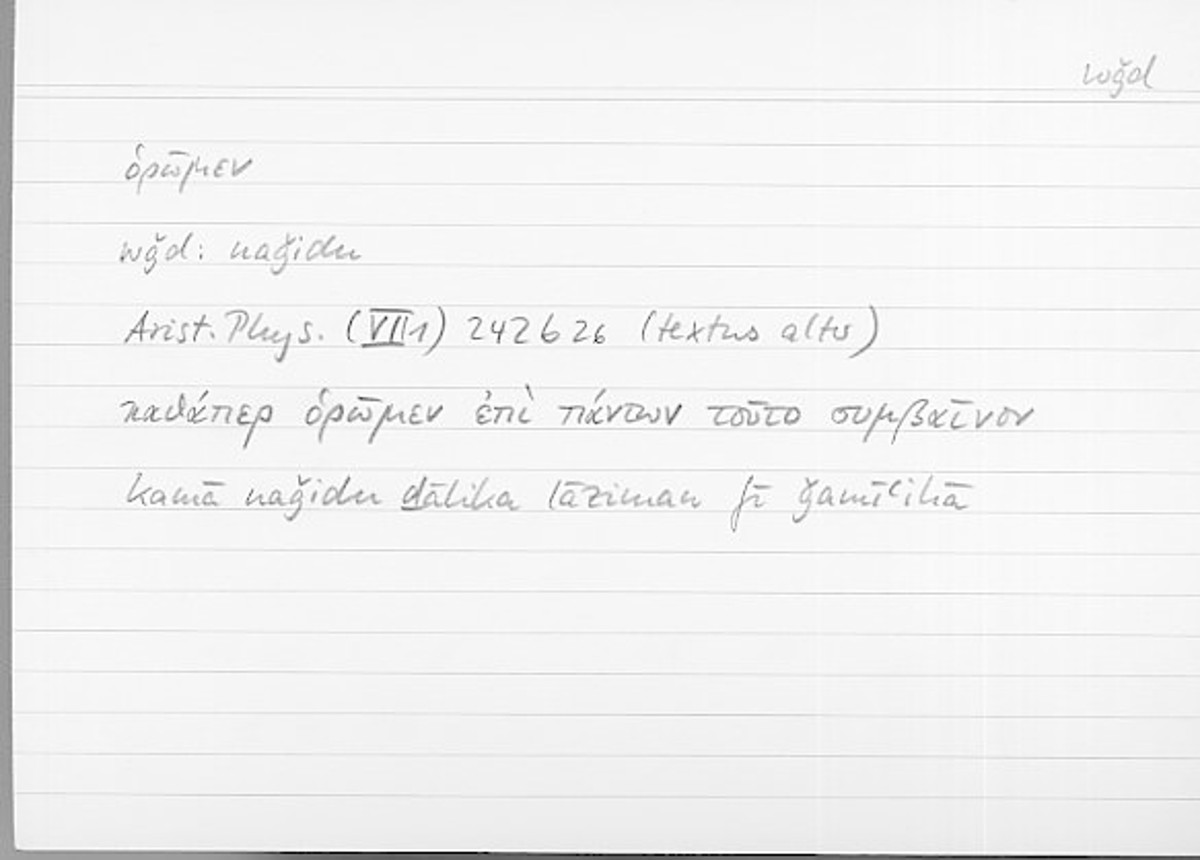 wǧd
ὁρῶμεν
wǧd: naǧidu
Arist. Phys. (VII 1) 242 b 26 (textus alter)
καθάπερ ὁρῶμεν ἐπὶ πάντων τοῦτο συμβαῖνον
kamā naǧidu ḏālika lāziman fī ǧamīʿihā